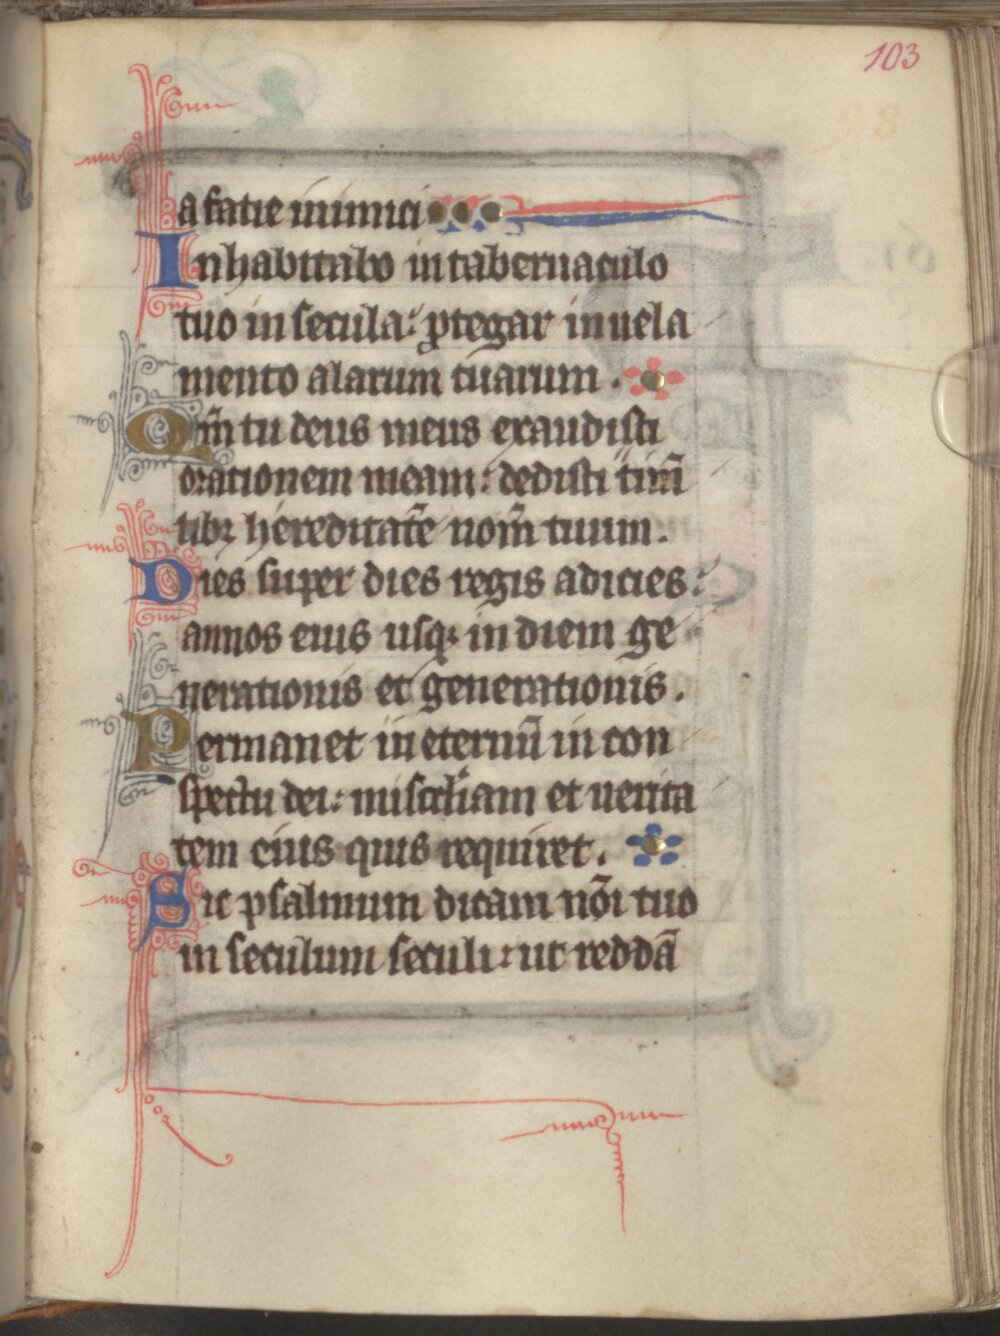 103
a facie inimici
Inhabitabo in tabernaculo
tuo in secula: ꝓtegar in uela
mento alarum tuarum.
Qm̄ tu deus meus exaudisti
orationem meam: dedisti
hereditatē nom̄ tuum.
Dies super dies regis adicies:
annos eius usqꝫ in diem ge
nerationis et generationis.
Permanet in eternū in con
spectu dei: et uerita
tem eius quis requiret.
Sic psalmum dicam nōi tuo
in seculum seculi: ut reddā